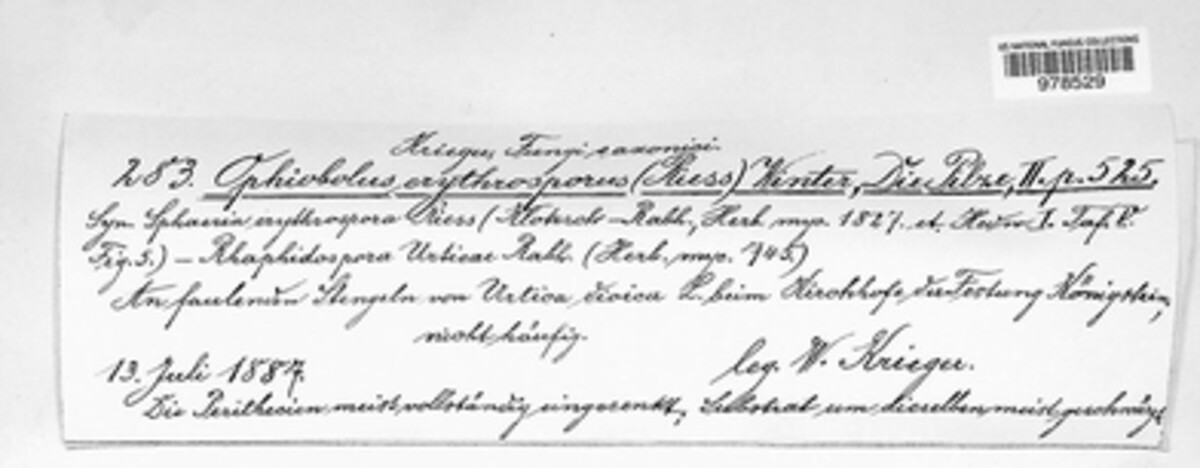 US NATIONAL FUNGUS COLLECTIONS
978529
Krieger, Fungi saxonici.
283. Ophiobolus erythrosporus (Riess) Winter, Die Pilze, II. p. 525.
Syn. Sphaeria erythrospora Riess (Klotzsch-Rabh., Herb. myc. 1827. et Hedw. I. Taf. V.
Fig. 5.) – Rhaphidospora Urticae Rabh. (Herb. myc. 745.)
An faulenden Stengeln von Urtica dioica L. beim Kirchhofe der Festung Königstein,
nicht häufig.
13. Juli 1887.
leg. W. Krieger.
Die Perithecien meist vollständig eingesenkt, Substrat um dieselben meist geschwärzt